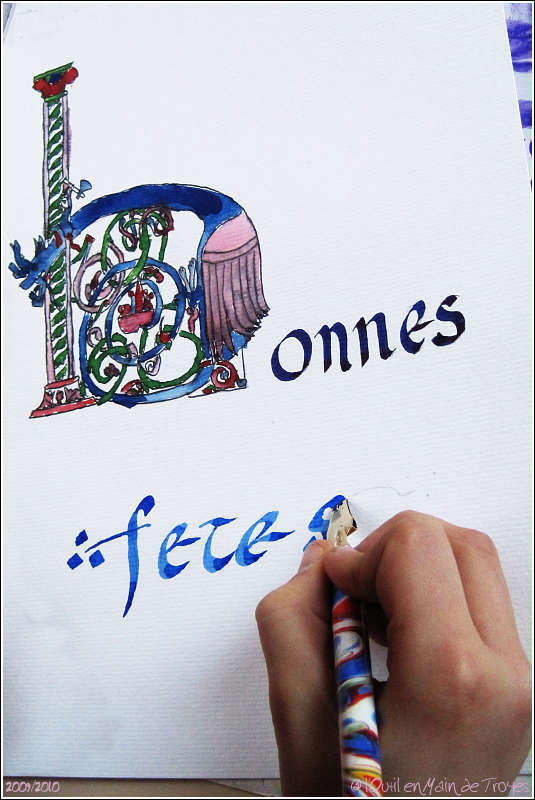 bonnes
fetes
2009/2010
@l'Outil en Main de Troyes